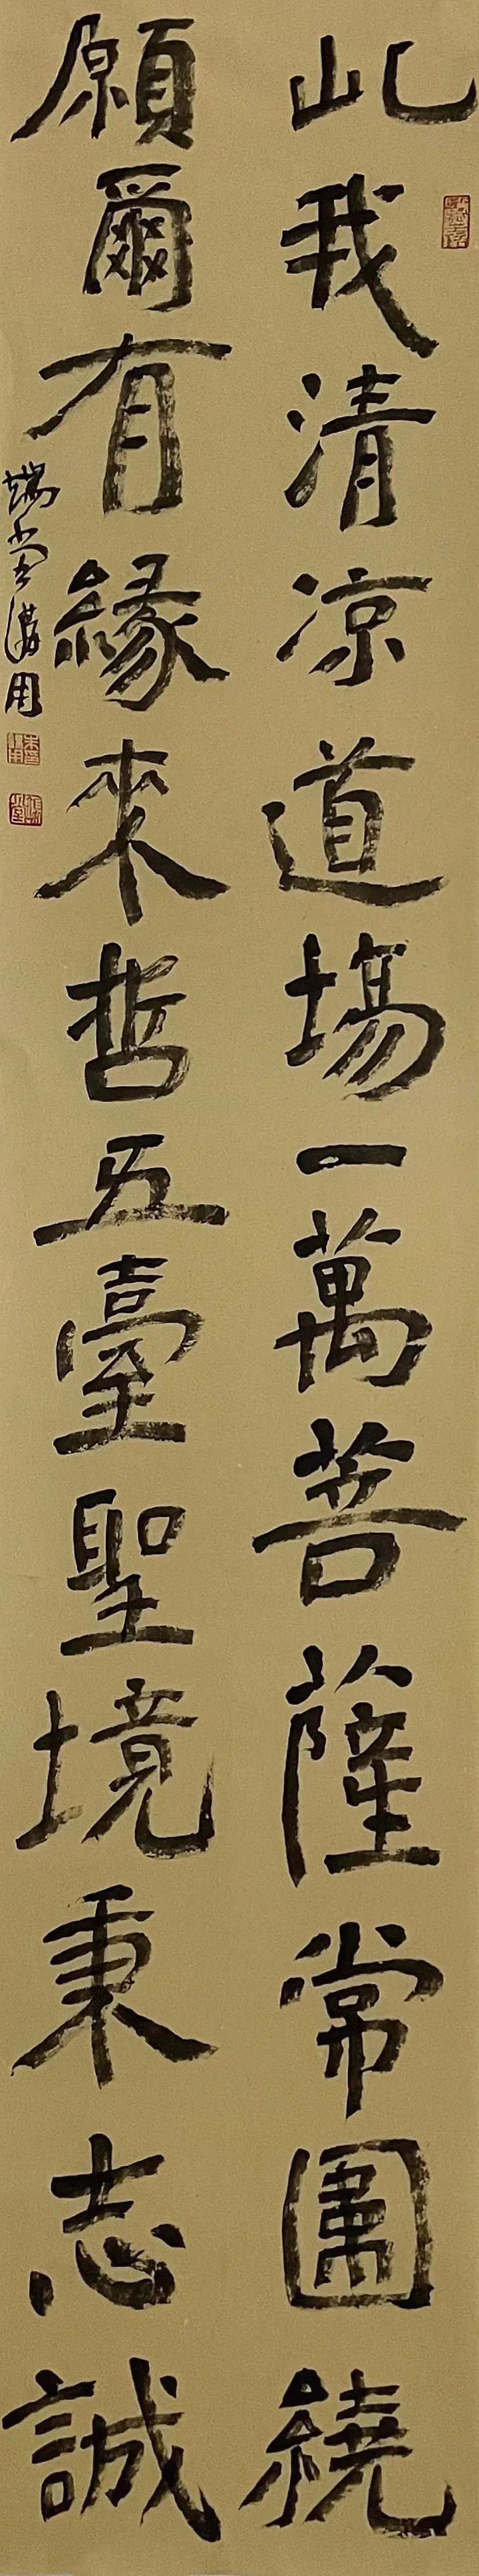 此我清凉道場一萬菩薩常圍繞
願爾有緣來哲五臺聖境秉志誠
端堂